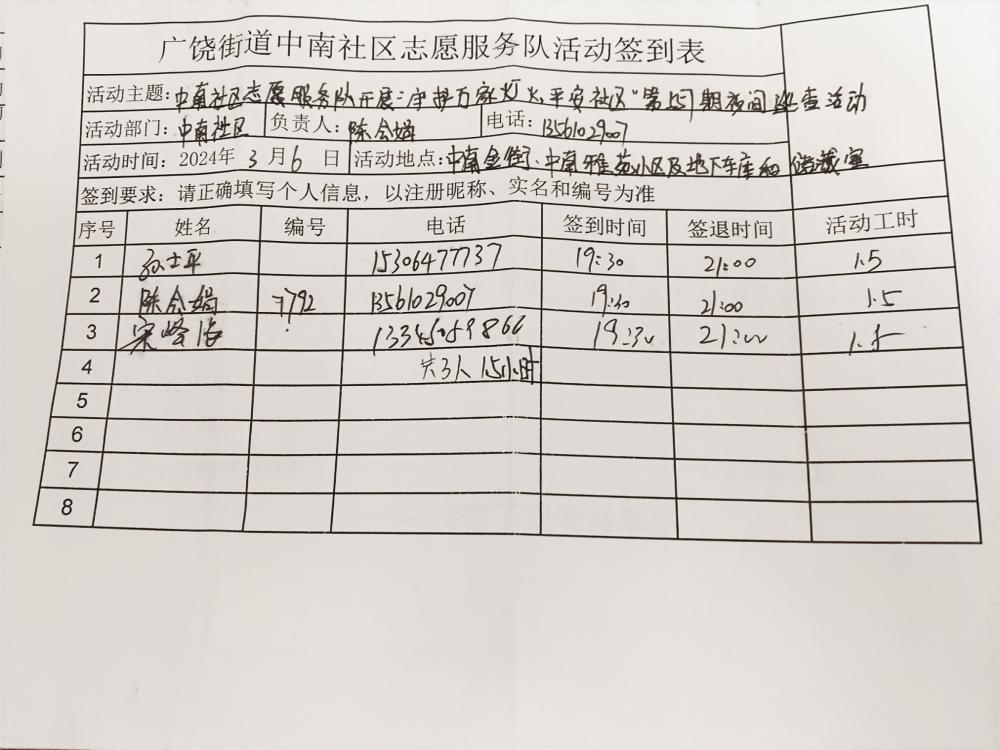 广饶街道中南社区志愿服务队活动签到表
活动主题：中南社区志愿服务队开展"守护万家灯火，平安社区"第151期夜间巡查活动
活动部门：中南社区 负责人：陈会娟 电话：13561029007
活动时间：2024年 3 月 6 日 活动地点：中南金街、中南雅苑小区及地下车库和储藏室
签到要求：请正确填写个人信息，以注册昵称、实名和编号为准
序号 姓名 编号 电话 签到时间 签退时间 活动工时
1 孙士平 15306477737 19:30 21:00 1.5
2 陈会娟 7792 13561029007 19:30 21:00 1.5
3 宋峰海 19:30 21:00 1.5
4 共3人 1.5小时
5
6
7
8